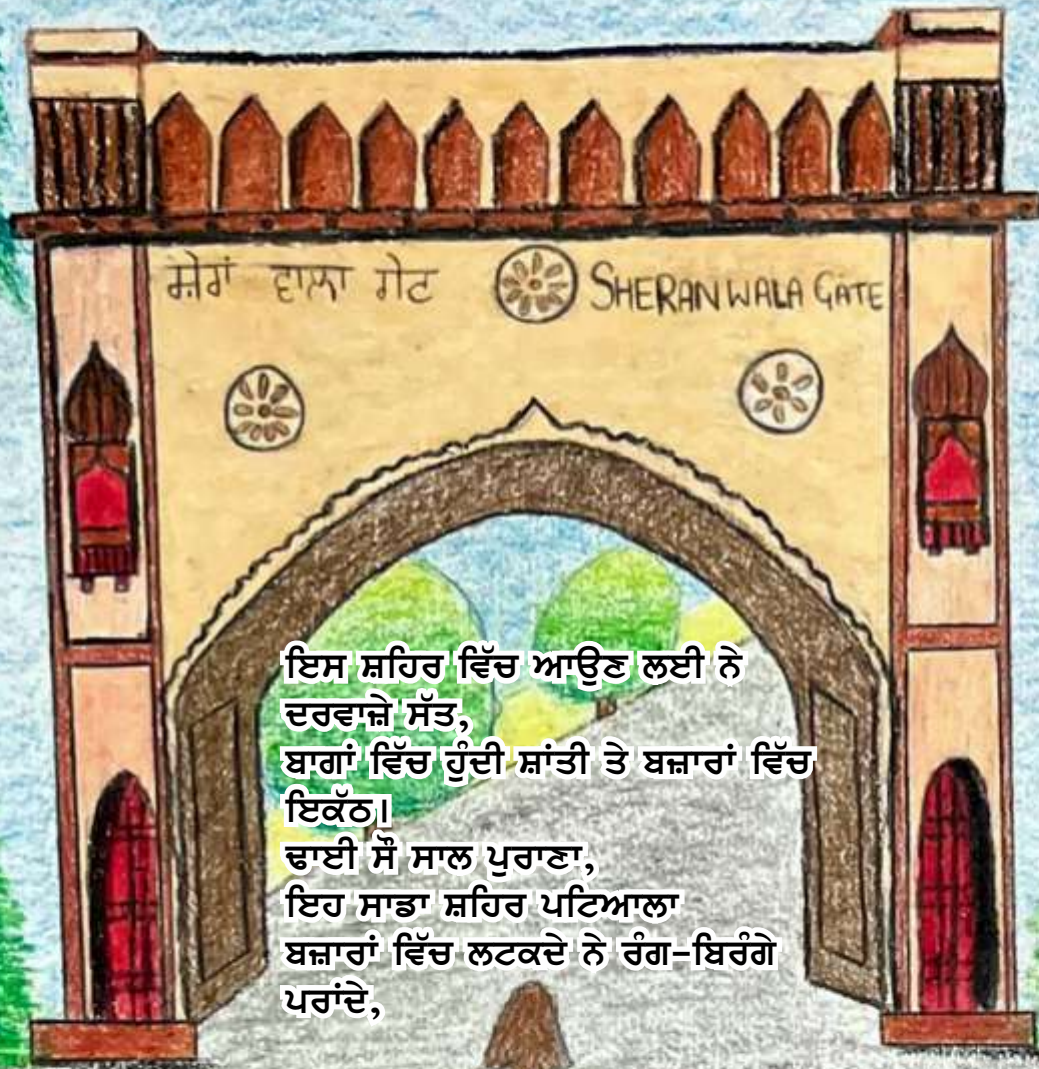 ਸ਼ੇਰਾਂ ਵਾਲਾ ਗੇਟ SHERANWALA GATE
ਇਸ ਸ਼ਹਿਰ ਵਿੱਚ ਆਉਣ ਲਈ ਨੇ
ਦਰਵਾਜ਼ੇ ਸੱਤ,
ਬਾਗਾਂ ਵਿੱਚ ਹੁੰਦੀ ਸ਼ਾਂਤੀ ਤੇ ਬਜ਼ਾਰਾਂ ਵਿੱਚ
ਇਕੱਠ।
ਢਾਈ ਸੌ ਸਾਲ ਪੁਰਾਣਾ,
ਇਹ ਸਾਡਾ ਸ਼ਹਿਰ ਪਟਿਆਲਾ
ਬਜ਼ਾਰਾਂ ਵਿੱਚ ਲਟਕਦੇ ਨੇ ਰੰਗ-ਬਿਰੰਗੇ
ਪਰਾਂਦੇ,